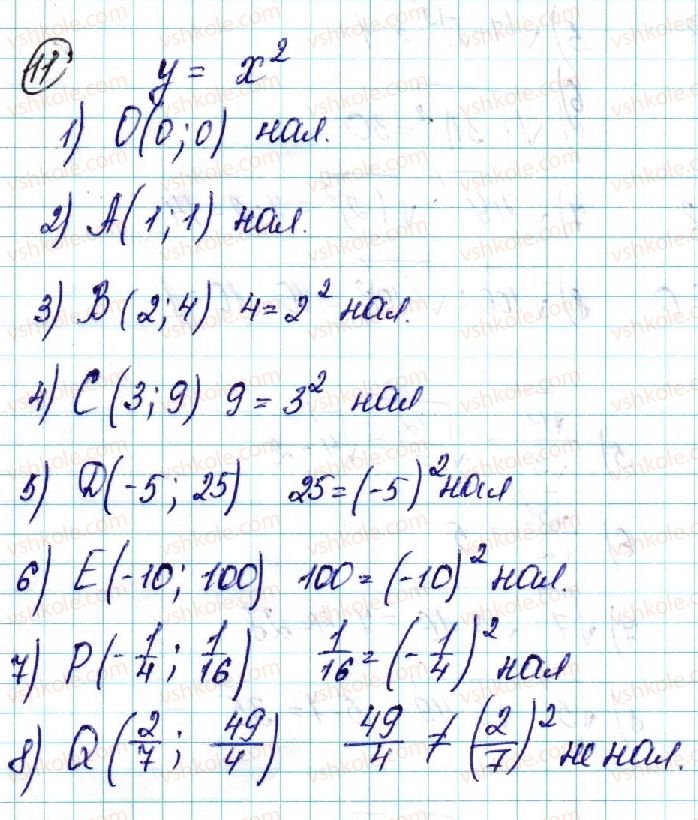 11
y = x²
1) O(0; 0) нал.
2) A(1; 1) нал.
3) B(2; 4) 4 = 2² нал.
4) C(3; 9) 9 = 3² нал
5) D(-5; 25) 25 = (-5)² нал
6) E(-10; 100) 100 = (-10)² нал.
7) P(-1/4; 1/16) 1/16 = (-1/4)² нал
8) Q(2/7; 49/4) 49/4 ≠ (2/7)² не нал.